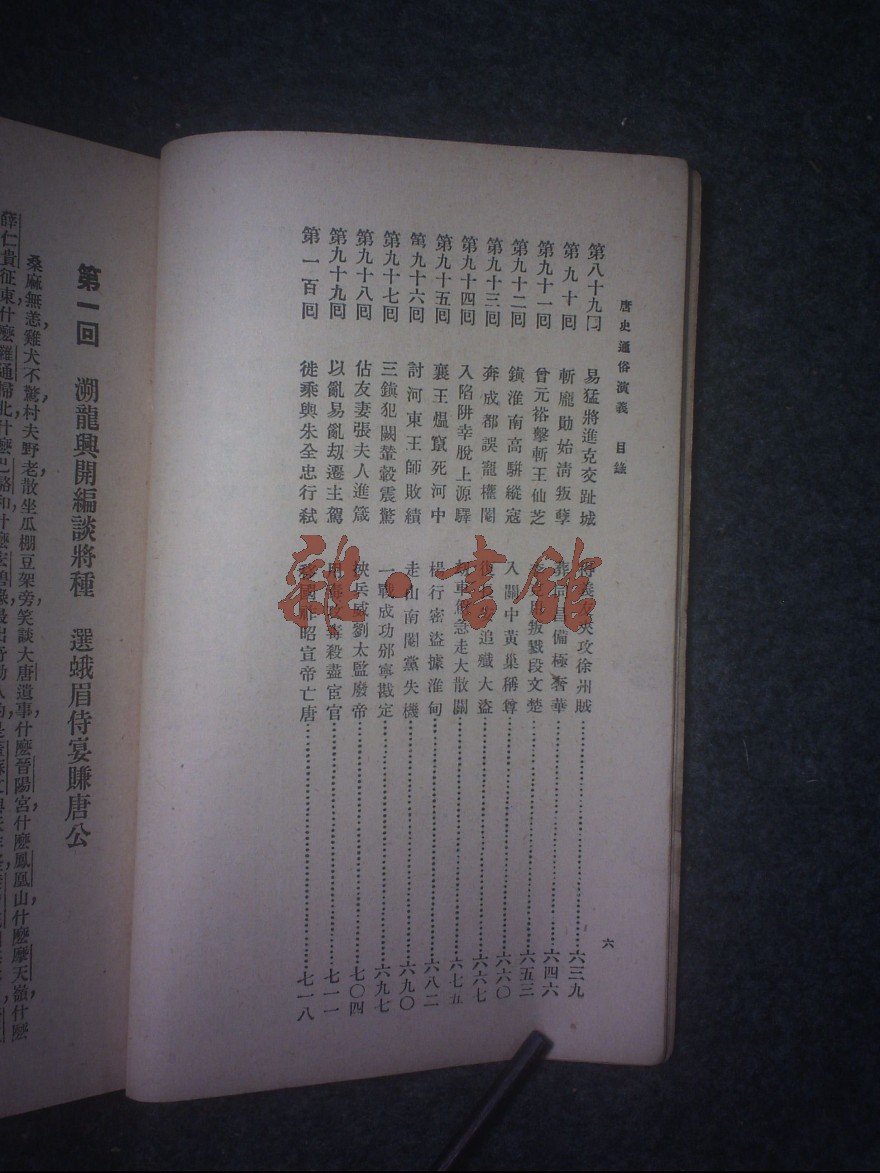 唐史通俗演義 目錄
六
第八十九回 易猛將進克交趾城 攻徐州賊 六三九
第九十回 斬龐勛始清叛孽 葬同昌備極奢華 六四六
第九十一回 曾元裕擊斬王仙芝 叛戮段文楚 六五三
第九十二回 鎮淮南高駢縱寇 入關中黃巢稱尊 六六〇
第九十三回 奔成都誤寵權閹 復長安追殲大盜 六六七
第九十四回 入陷阱幸脫上源驛 車駕急走大散關 六七五
第九十五回 襄王熅竄死河中 楊行密盜據淮甸 六八二
第九十六回 討河東王師敗績 走山南閹黨失機 六九〇
第九十七回 三鎮犯闕輦轂震驚 一戰成功邠寧戡定 六九七
第九十八回 佔友妻張夫人進箴 挾兵威劉太監廢帝 七〇四
第九十九回 以亂易亂劫遷主駕 用毒攻毒殺盡宦官 七一一
第一百回 徙乘輿朱全忠行弒 移國祚昭宣帝亡唐 七一八
雜·書館
第一回 溯龍興開編談將種 選蛾眉侍宴賺唐公
桑麻無恙,雞犬不驚,村夫野老,散坐瓜棚豆架旁,笑談大唐遺事,什麽晉陽宮,什麽鳳凰山,什麽摩天嶺,什麽
薛仁貴征東,什麽羅通掃北,什麽巴駱和,什麽宏碧緣,